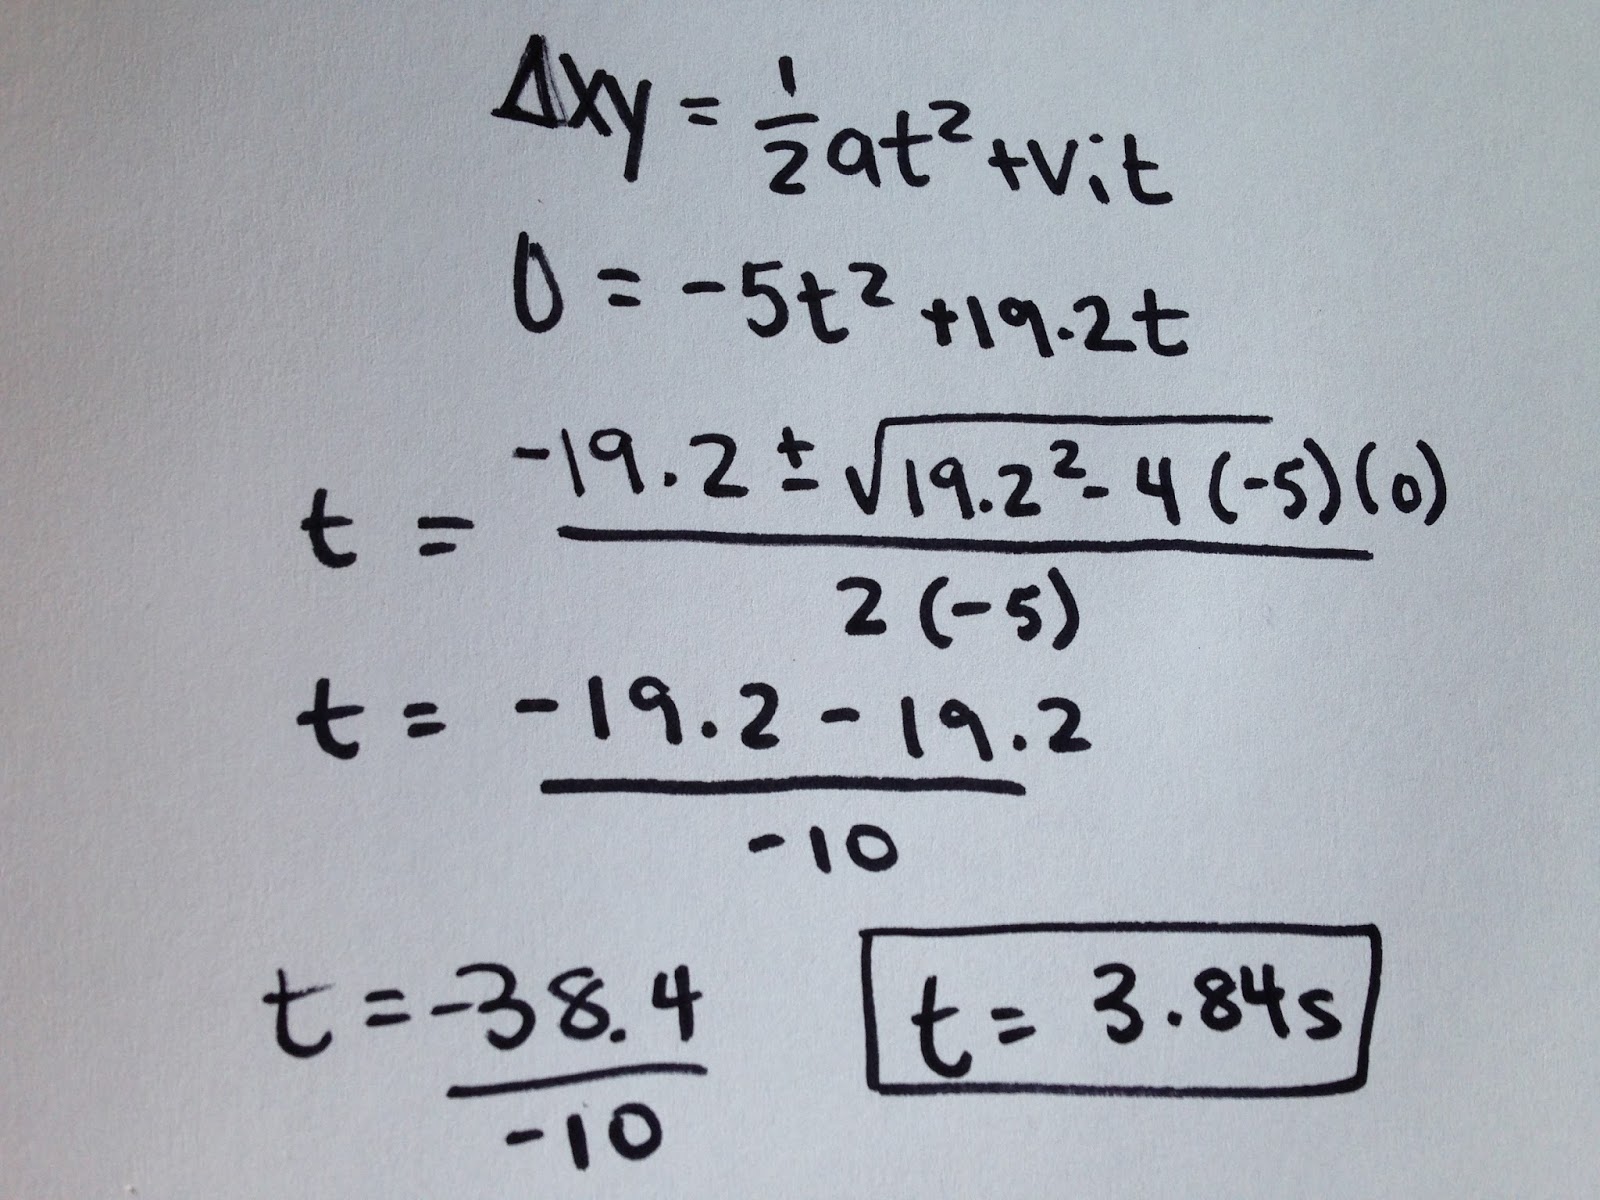 Δxy = 1/2 at² + vit
0 = -5t² + 19.2t
t = (-19.2 ± √(19.2² - 4(-5)(0))) / 2(-5)
t = (-19.2 - 19.2) / -10
t = -38.4 / -10
t = 3.84s